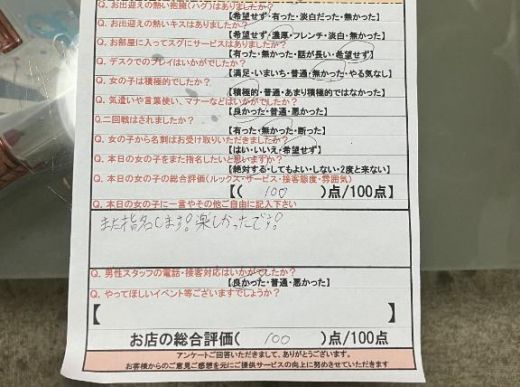 Q. お出迎えの熱い抱擁(ハグ)はありましたか?
【希望せず・有った・淡白だった・無かった】
Q. お出迎えの熱いキスはありましたか?
【希望せず・濃厚・フレンチ・淡白・無かった】
Q. お部屋に入ってスグにサービスはありましたか?
【有った・無かった・話が長い・希望せず】
Q. デスクでのプレイはいかがでしたか?
【満足・いまいち・普通・無かった・やる気なし】
Q. 女の子は積極的でしたか?
【積極的・普通・あまり積極的ではなかった】
Q. 気遣いや言葉使い、マナーなどはいかがでしたか?
【良かった・普通・悪かった】
Q.二回戦はされましたか?
【有った・無かった・断った】
Q. 女の子から名刺はお受け取りいただきましたか?
【はい・いいえ・希望せず】
Q. 本日の女の子をまた指名したいと思いますか?
【絶対する・してもよい・しない・2度と来ない】
Q. 本日の女の子の総合評価(ルックス・サービス・接客態度・雰囲気)
【( 100 )点/100点】
Q. 本日の女の子に一言やその他ご自由に記入下さい
また指名します!楽しかったです!
Q. 男性スタッフの電話・接客対応はいかがでしたか?
【良かった・普通・悪かった】
Q. やってほしいイベント等ございますでしょうか?
【 】
お店の総合評価( 100 )点/100点
アンケートご回答いただきまして、ありがとうございます。
お客様からのご意見ご感想を元にご提供サービスの向上に努めさせていただきます